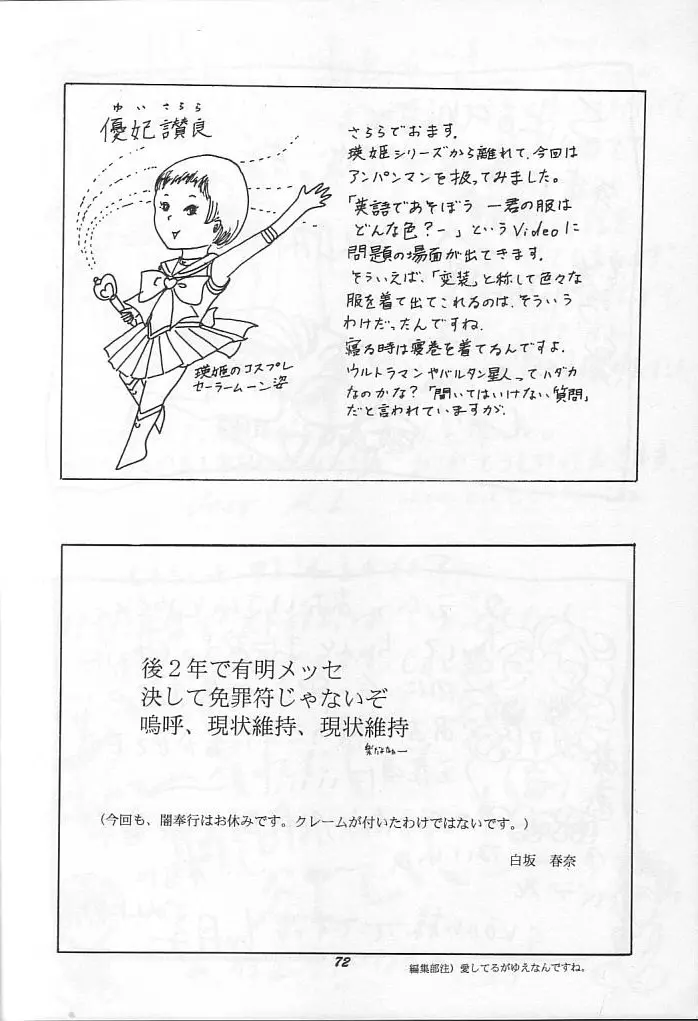 ゆいさらら
優妃讃良
さららでおます。
瑛姫シリーズから離れて、今回は
アンパンマンを扱ってみました。
「英語であそぼう ー君の服は
どんな色？ー」というVideoに
問題の場面が出てきます。
そういえば、「変装」と称して色々な
服を着て出てこれるのは、そういう
わけだったんですね。
寝る時は寝巻を着てるんですよ。
ウルトラマンやバルタン星人ってハダカ
なのかな？「聞いてはいけない質問」
だと言われていますが。
瑛姫のコスプレ
セーラームーン姿
後２年で有明メッセ
決して免罪符じゃないぞ
嗚呼、現状維持、現状維持
楽だなぁー
（今回も、闇奉行はお休みです。クレームが付いたわけではないです。）
白坂 春奈
72
編集部注）愛してるがゆえなんですね。